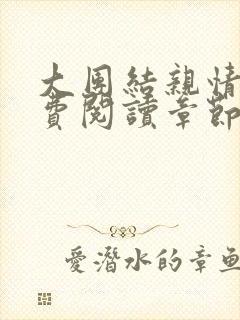 大團結親情
費閱讀章節
愛潛水的章魚